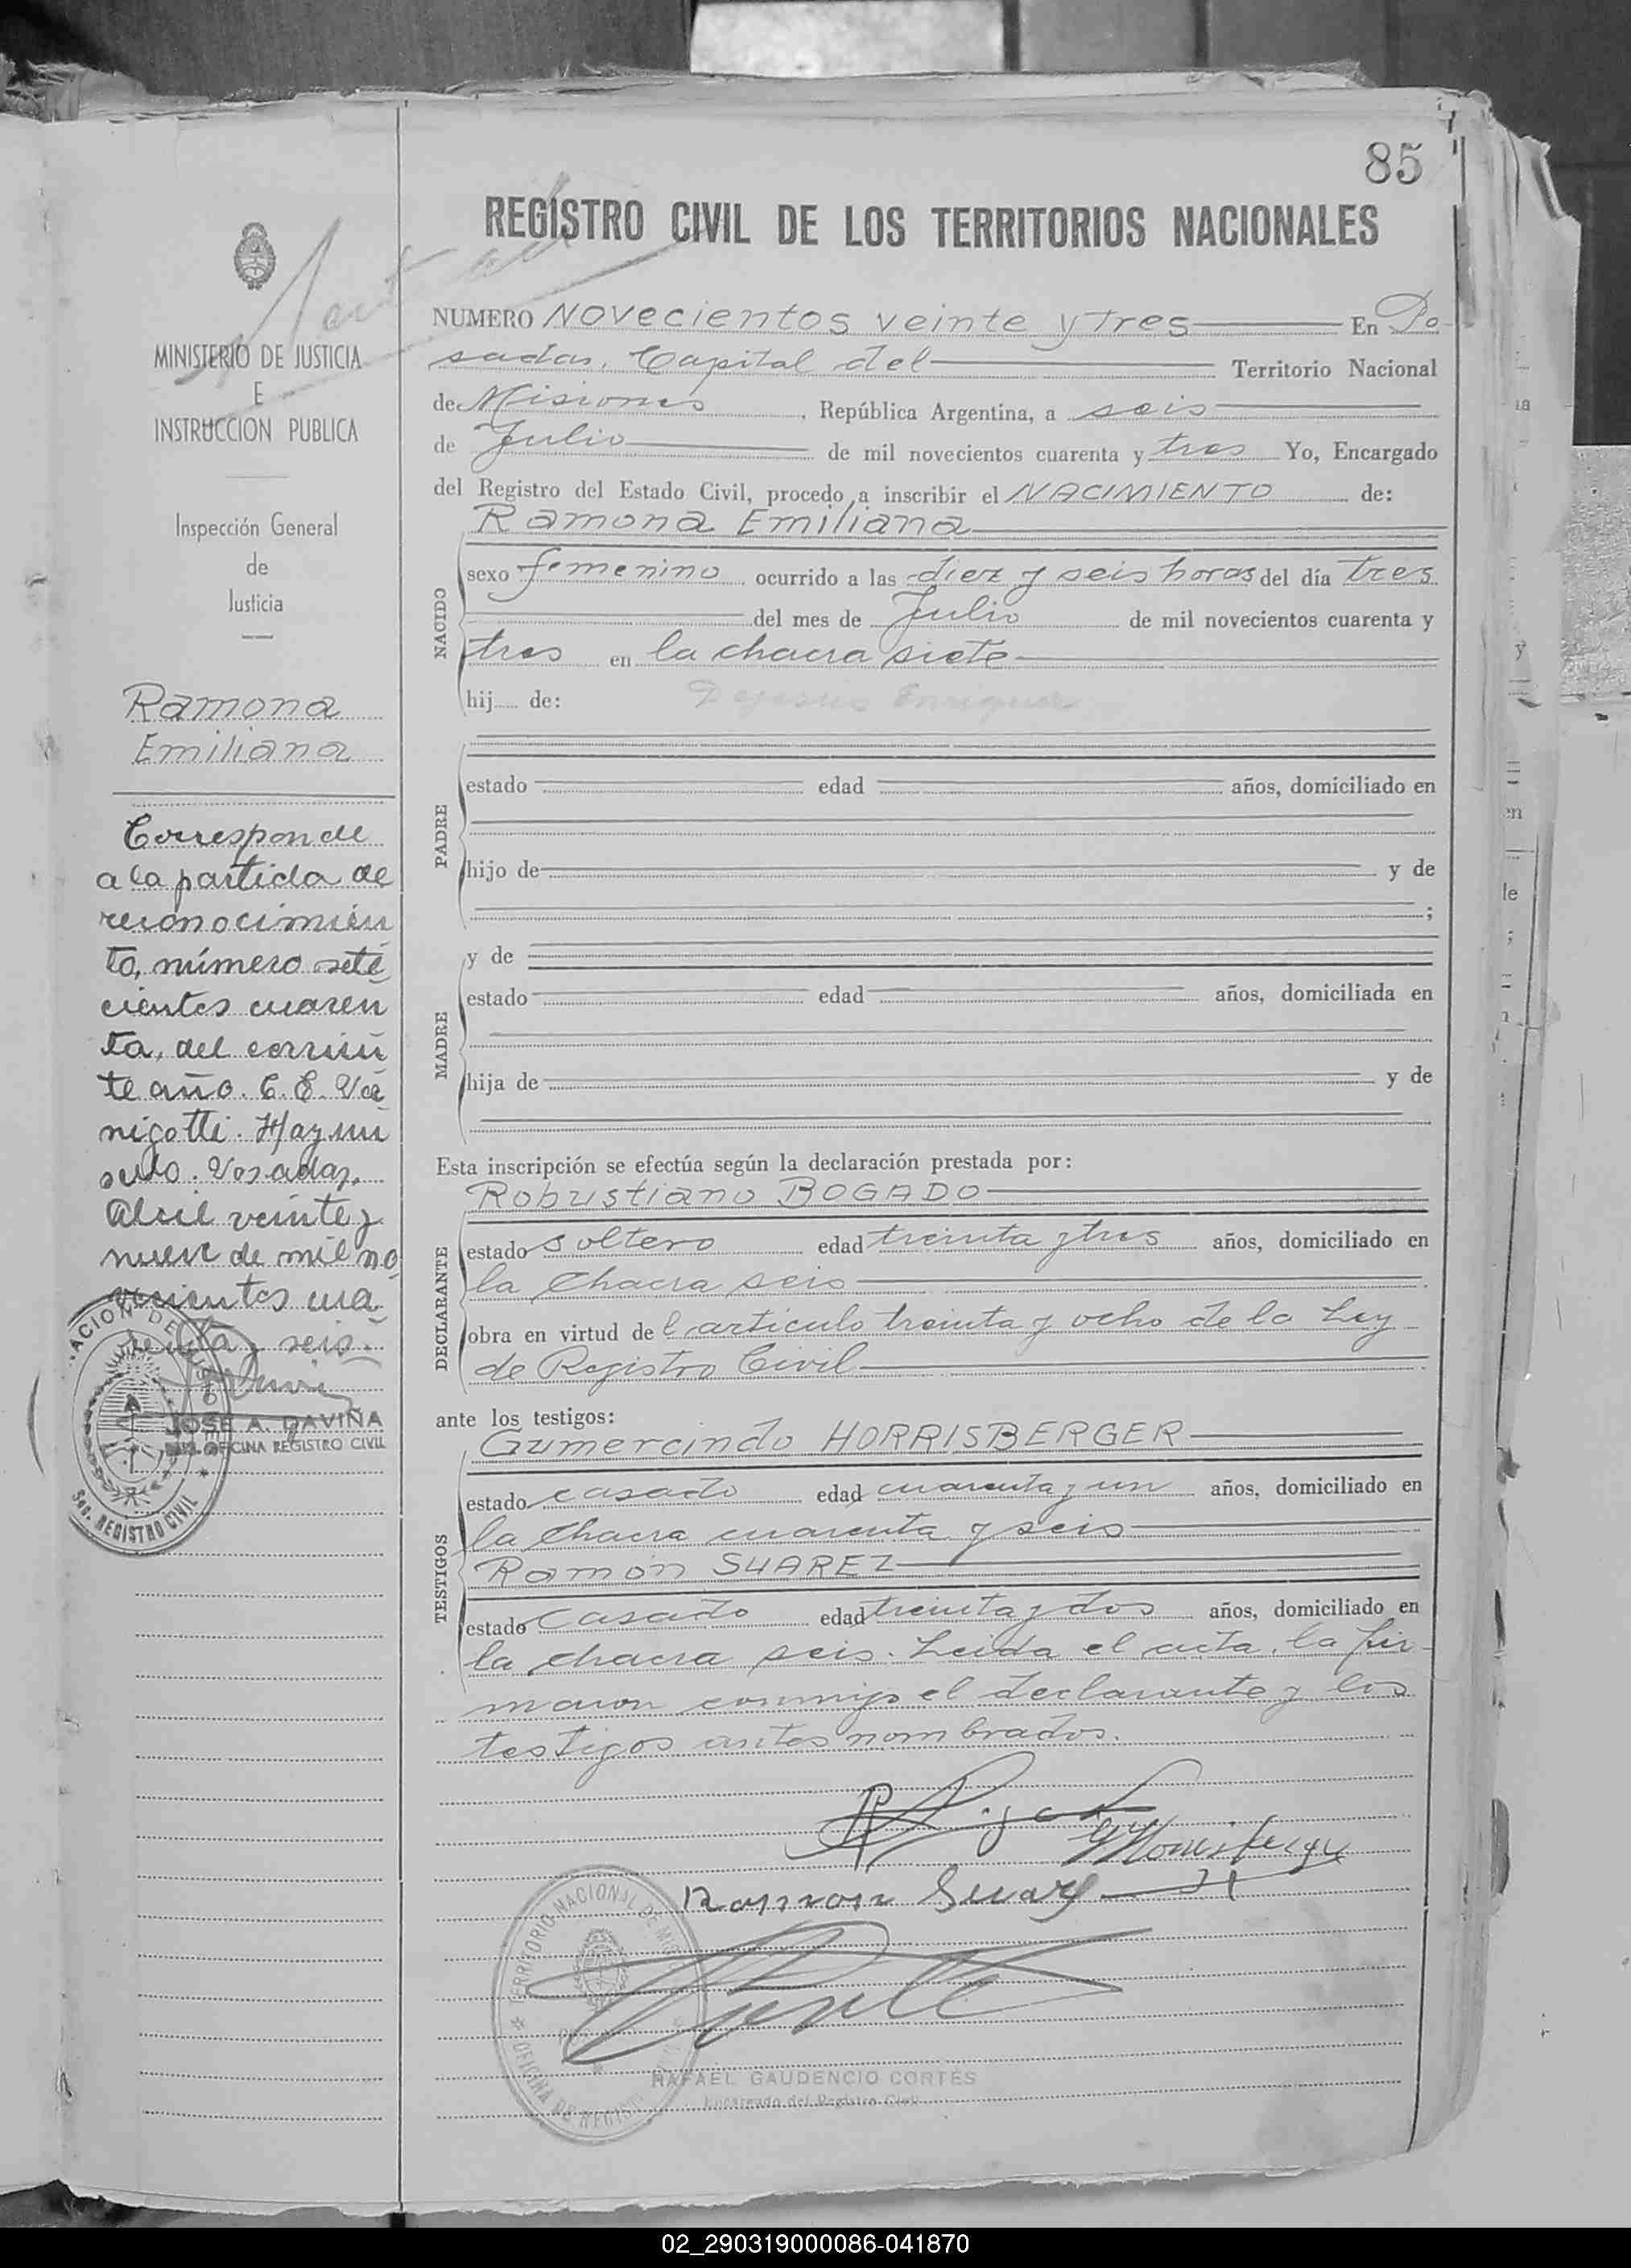 85
REGISTRO CIVIL DE LOS TERRITORIOS NACIONALES
MINISTERIO DE JUSTICIA
E
INSTRUCCION PUBLICA
Inspección General
de
Justicia
Ramona
Emiliana
Corresponde
a la partida de
reconocimien
to, número sete
cientos cuaren
ta, del corrien
te año. C. E.
nigotti. Hay un
sello. Posadas,
Abril veinte y
nueve de mil no
vecientos cua
renta y seis.
JOSE A. DAVIÑA
OFICINA REGISTRO CIVIL
REGISTRO CIVIL
NUMERO Novecientos veinte y Tres En Po
sadas, Capital del Territorio Nacional
de Misiones, República Argentina, a seis
de Julio de mil novecientos cuarenta y tres Yo, Encargado
del Registro del Estado Civil, procedo a inscribir el NACIMIENTO de:
Ramona Emiliana
NACIDO
sexo femenino ocurrido a las diez y seis horas del día tres
del mes de Julio de mil novecientos cuarenta y
tres en la chacra siete
hij de: Dejesus Enriquez
PADRE
estado edad años, domiciliado en
hijo de y de
;
y de
MADRE
estado edad años, domiciliada en
hija de y de
Esta inscripción se efectúa según la declaración prestada por:
Robustiano BOGADO
DECLARANTE
estado soltero edad treinta y tres años, domiciliado en
la Chacra seis
obra en virtud del articulo treinta y ocho de la Ley
de Registro Civil
ante los testigos:
Gumercindo HORRISBERGER
TESTIGOS
estado casado edad cuarenta y un años, domiciliado en
la Chacra cuarenta y seis
Ramón SUAREZ
estado casado edad treinta y dos años, domiciliado en
la chacra seis. Leida el acta, la fir-
maron conmigo el declarante y los
testigos antes nombrados.
Ramon Suarez
TERRITORIO NACIONAL DE
OFICINA DE REGISTRO
RAFAEL GAUDENCIO CORTÉS
Encargado del Registro Civil
02_290319000086-041870